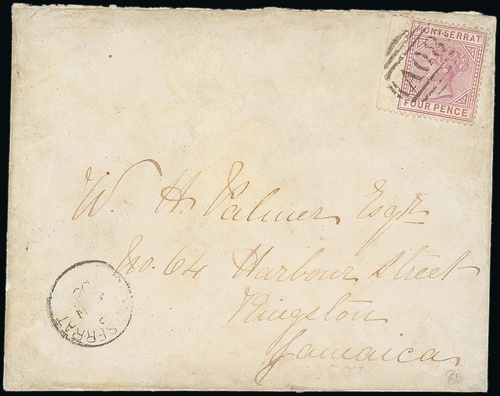 MONTSERRAT
A08
FOUR PENCE
W. H. Palmer Esqr
No. 64 Harbour Street
Kingston
Jamaica
SERRAT